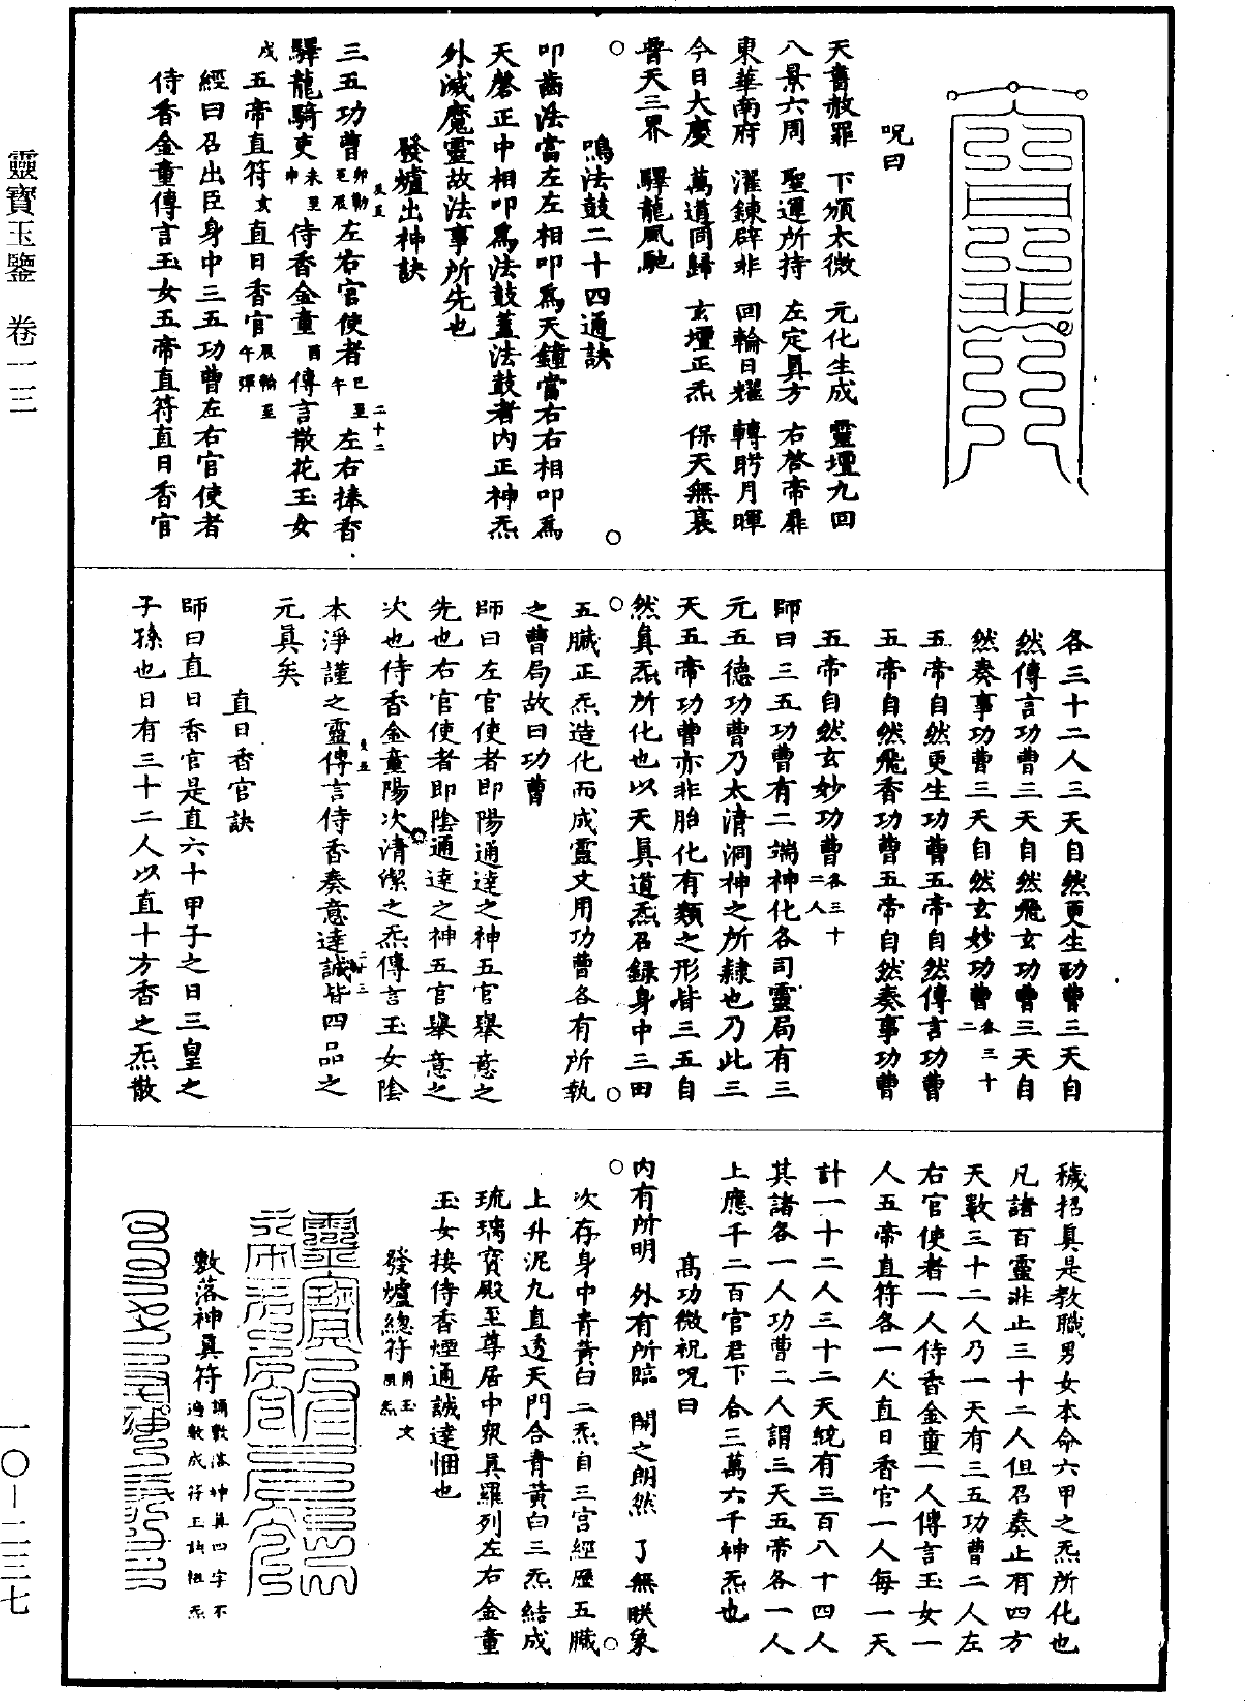 靈寶玉鑒 卷一三
一〇—二三七
呪曰
天書赦罪 下頒太微 元化生成 靈壇九回
八景六周 聖運所持 左定真方 右啓帝扉
東華南府 濯鍊辟非 回輪日耀 轉眄月暉
今日大慶 萬道同歸 玄壇正炁 保天無衰
普天三界 驛龍風馳
鳴法鼓二十四通訣
叩齒法當左左相叩爲天鐘當右右相叩爲
天磬正中相叩爲法鼓蓋法鼓者內正神炁
外滅魔靈故法事所先也
發爐出神訣
三五功曹卯勒至辰左右官使者巳至午左右捧香
驛龍騎吏未至申侍香金童酉傳言散花玉女
戌五帝直符亥直日香官辰輪至午彈
經曰召出臣身中三五功曹左右官使者
侍香金童傳言玉女五帝直符直日香官
各三十二人三天自然更生功曹三天自
然傳言功曹三天自然飛玄功曹三天自
然奏事功曹三天自然玄妙功曹各三十二
五帝自然更生功曹五帝自然傳言功曹
五帝自然飛香功曹五帝自然奏事功曹
五帝自然玄妙功曹各三十二人
師曰三五功曹有二端神化各司靈局有三
元五德功曹乃太清洞神之所隸也乃此三
天五帝功曹亦非胎化有類之形皆三五自
然真炁所化也以天真道炁召錄身中三田
五臟正炁造化而成靈文用功曹各有所執
之曹局故曰功曹
師曰左官使者即陽通達之神五官舉意之
先也右官使者即陰通達之神五官舉意之
次也侍香金童陽次清潔之炁傳言玉女陰
本淨謹之靈傳言侍香奏意達誠皆四品之
元真矣
直日香官訣
師曰直日香官是直六十甲子之日三皇之
子孫也日有三十二人以直十方香之炁散
穢招真是教職男女本命六甲之炁所化也
凡諸百靈非止三十二人但召奏止有四方
天數三十二人乃一天有三五功曹二人左
右官使者一人侍香金童一人傳言玉女一
人五帝直符各一人直日香官一人每一天
計一十二人三十二天統有三百八十四人
其諸各一人功曹二人謂三天五帝各一人
上應千二百官君下合三萬六千神炁也
高功微祝呪曰
內有所明 外有所臨 開之朗然 了無眹象
次存身中青黃白三炁自三宮經歷五臟
上升泥丸直透天門合青黃白三炁結成
琉璃寶殿至尊居中衆真羅列左右金童
玉女接侍香煙通誠達悃也
發爐總符
敷落神真符誦敷落神真四字不過數成符玉訣祖炁